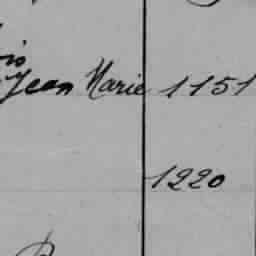 Jean Marie 1151
1220